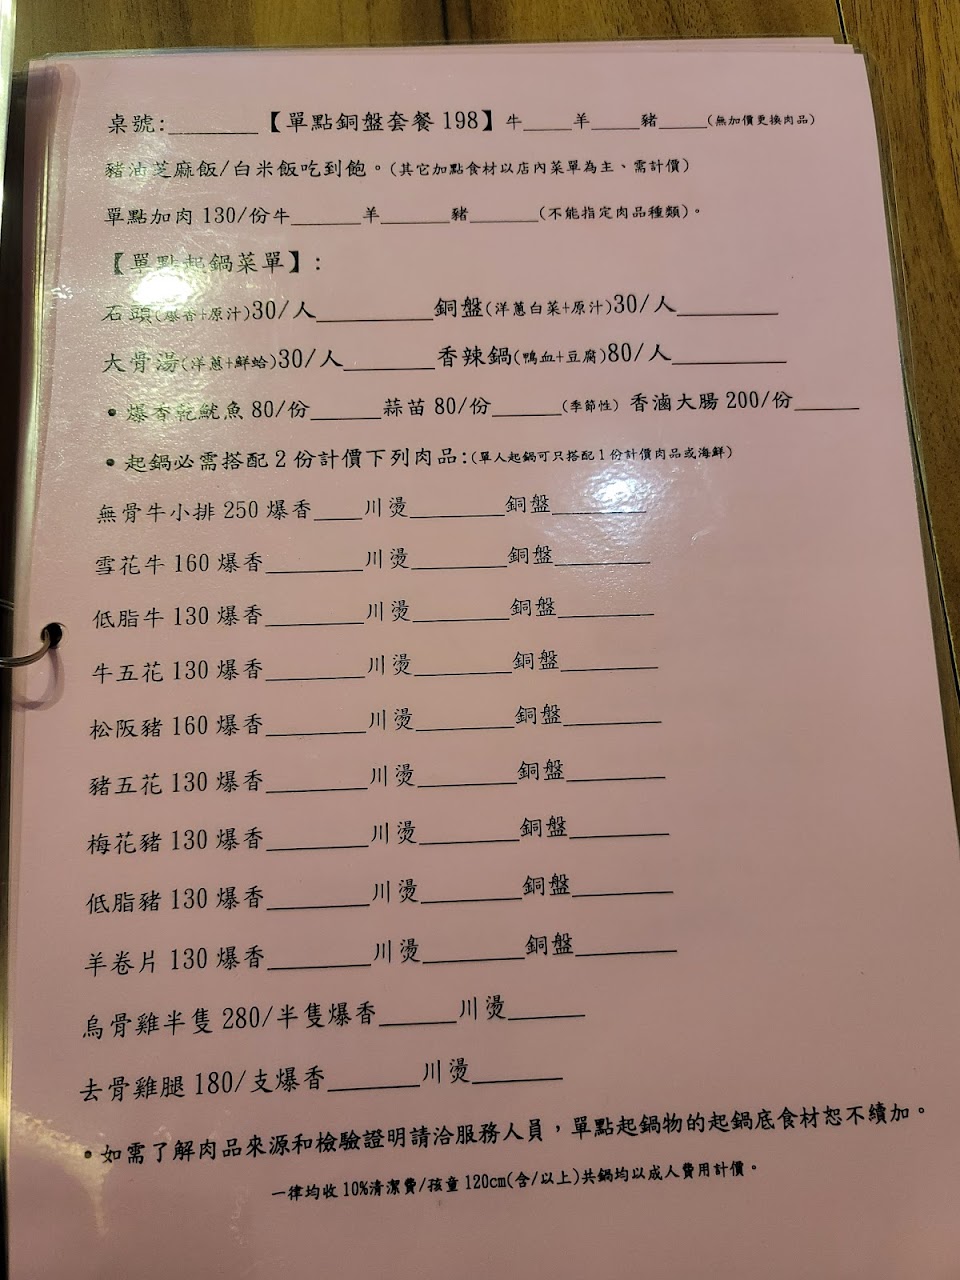 桌號:________【單點銅盤套餐 198】牛____羊____豬____(無加價更換肉品)
豬油芝麻飯/白米飯吃到飽。(其它加點食材以店內菜單為主、需計價)
單點加肉 130/份牛______羊______豬______(不能指定肉品種類)。
【單點起鍋菜單】:
石頭(爆香+原汁)30/人__________銅盤(洋蔥白菜+原汁)30/人_________
大骨湯(洋蔥+鮮蛤)30/人________香辣鍋(鴨血+豆腐)80/人__________
•爆香乾魷魚 80/份______蒜苗 80/份______(季節性) 香滷大腸 200/份______
•起鍋必需搭配 2 份計價下列肉品:(單人起鍋可只搭配 1 份計價肉品或海鮮)
無骨牛小排 250 爆香____川燙________銅盤________
雪花牛 160 爆香________川燙________銅盤________
低脂牛 130 爆香________川燙________銅盤________
牛五花 130 爆香________川燙________銅盤________
松阪豬 160 爆香________川燙________銅盤________
豬五花 130 爆香________川燙________銅盤________
梅花豬 130 爆香________川燙________銅盤________
低脂豬 130 爆香________川燙________銅盤________
羊卷片 130 爆香________川燙________銅盤________
烏骨雞半隻 280/半隻爆香______川燙______
去骨雞腿 180/支爆香_______川燙_______
•如需了解肉品來源和檢驗證明請洽服務人員，單點起鍋物的起鍋底食材恕不續加。
一律均收 10%清潔費/孩童 120cm(含/以上)共鍋均以成人費用計價。